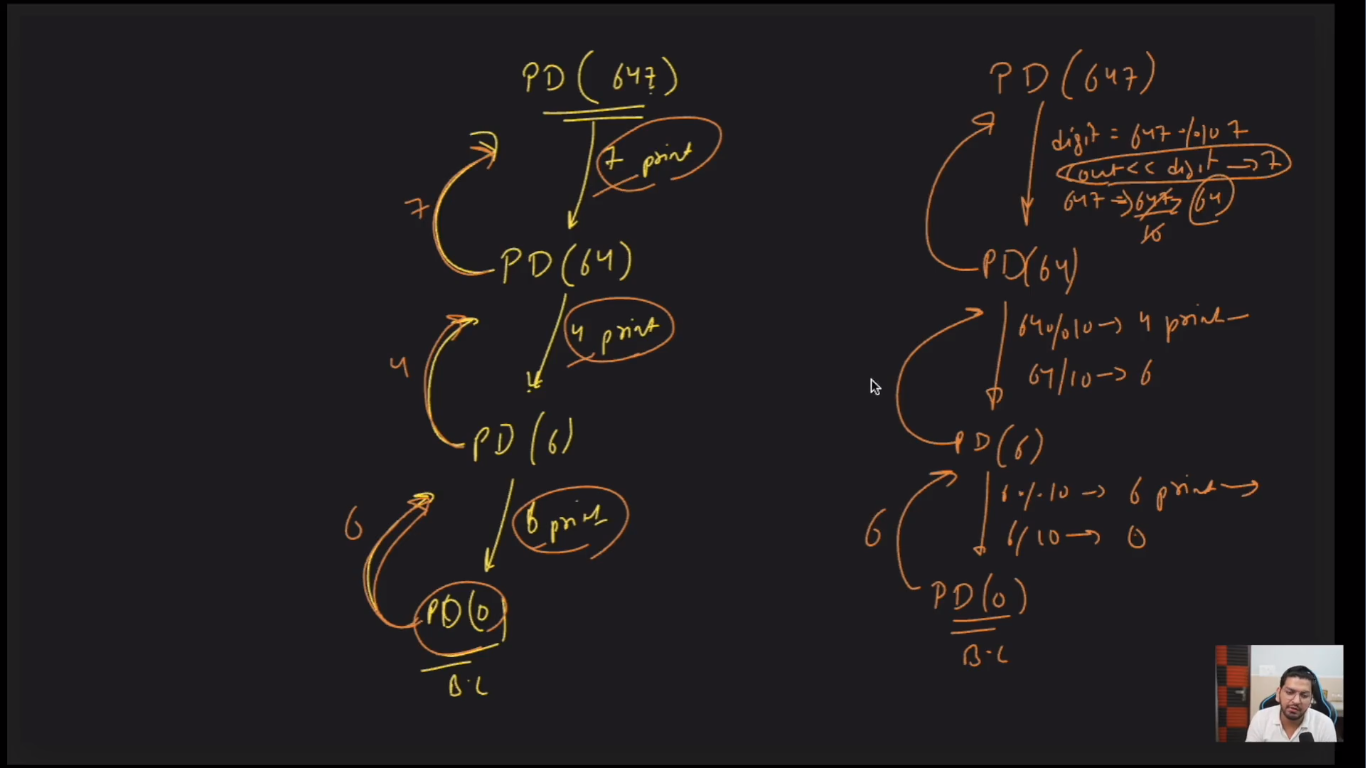 PD (647)
7 print
7
PD (64)
4 print
4
PD (6)
6 print
6
PD(0)
B.C
PD (647)
digit = 647 % 10 7
cout << digit → 7
647 → 647/10 64
PD(64)
64 % 10 → 4 print
64/10 → 6
PD (6)
6 % 10 → 6 print →
6/10 → 0
6
PD(0)
B.C